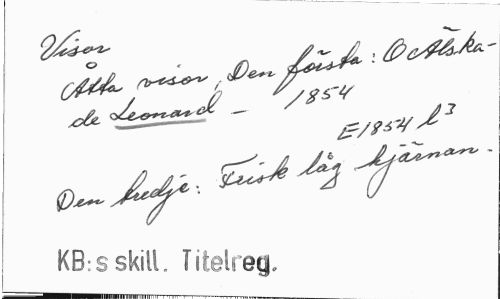 Visor
Åtta visor, Den första: O Älska-
de Leonard – 1854
E1854 l³
Den tredje: Frisk låg kjärnan.
KB:s skill. Titelreg.